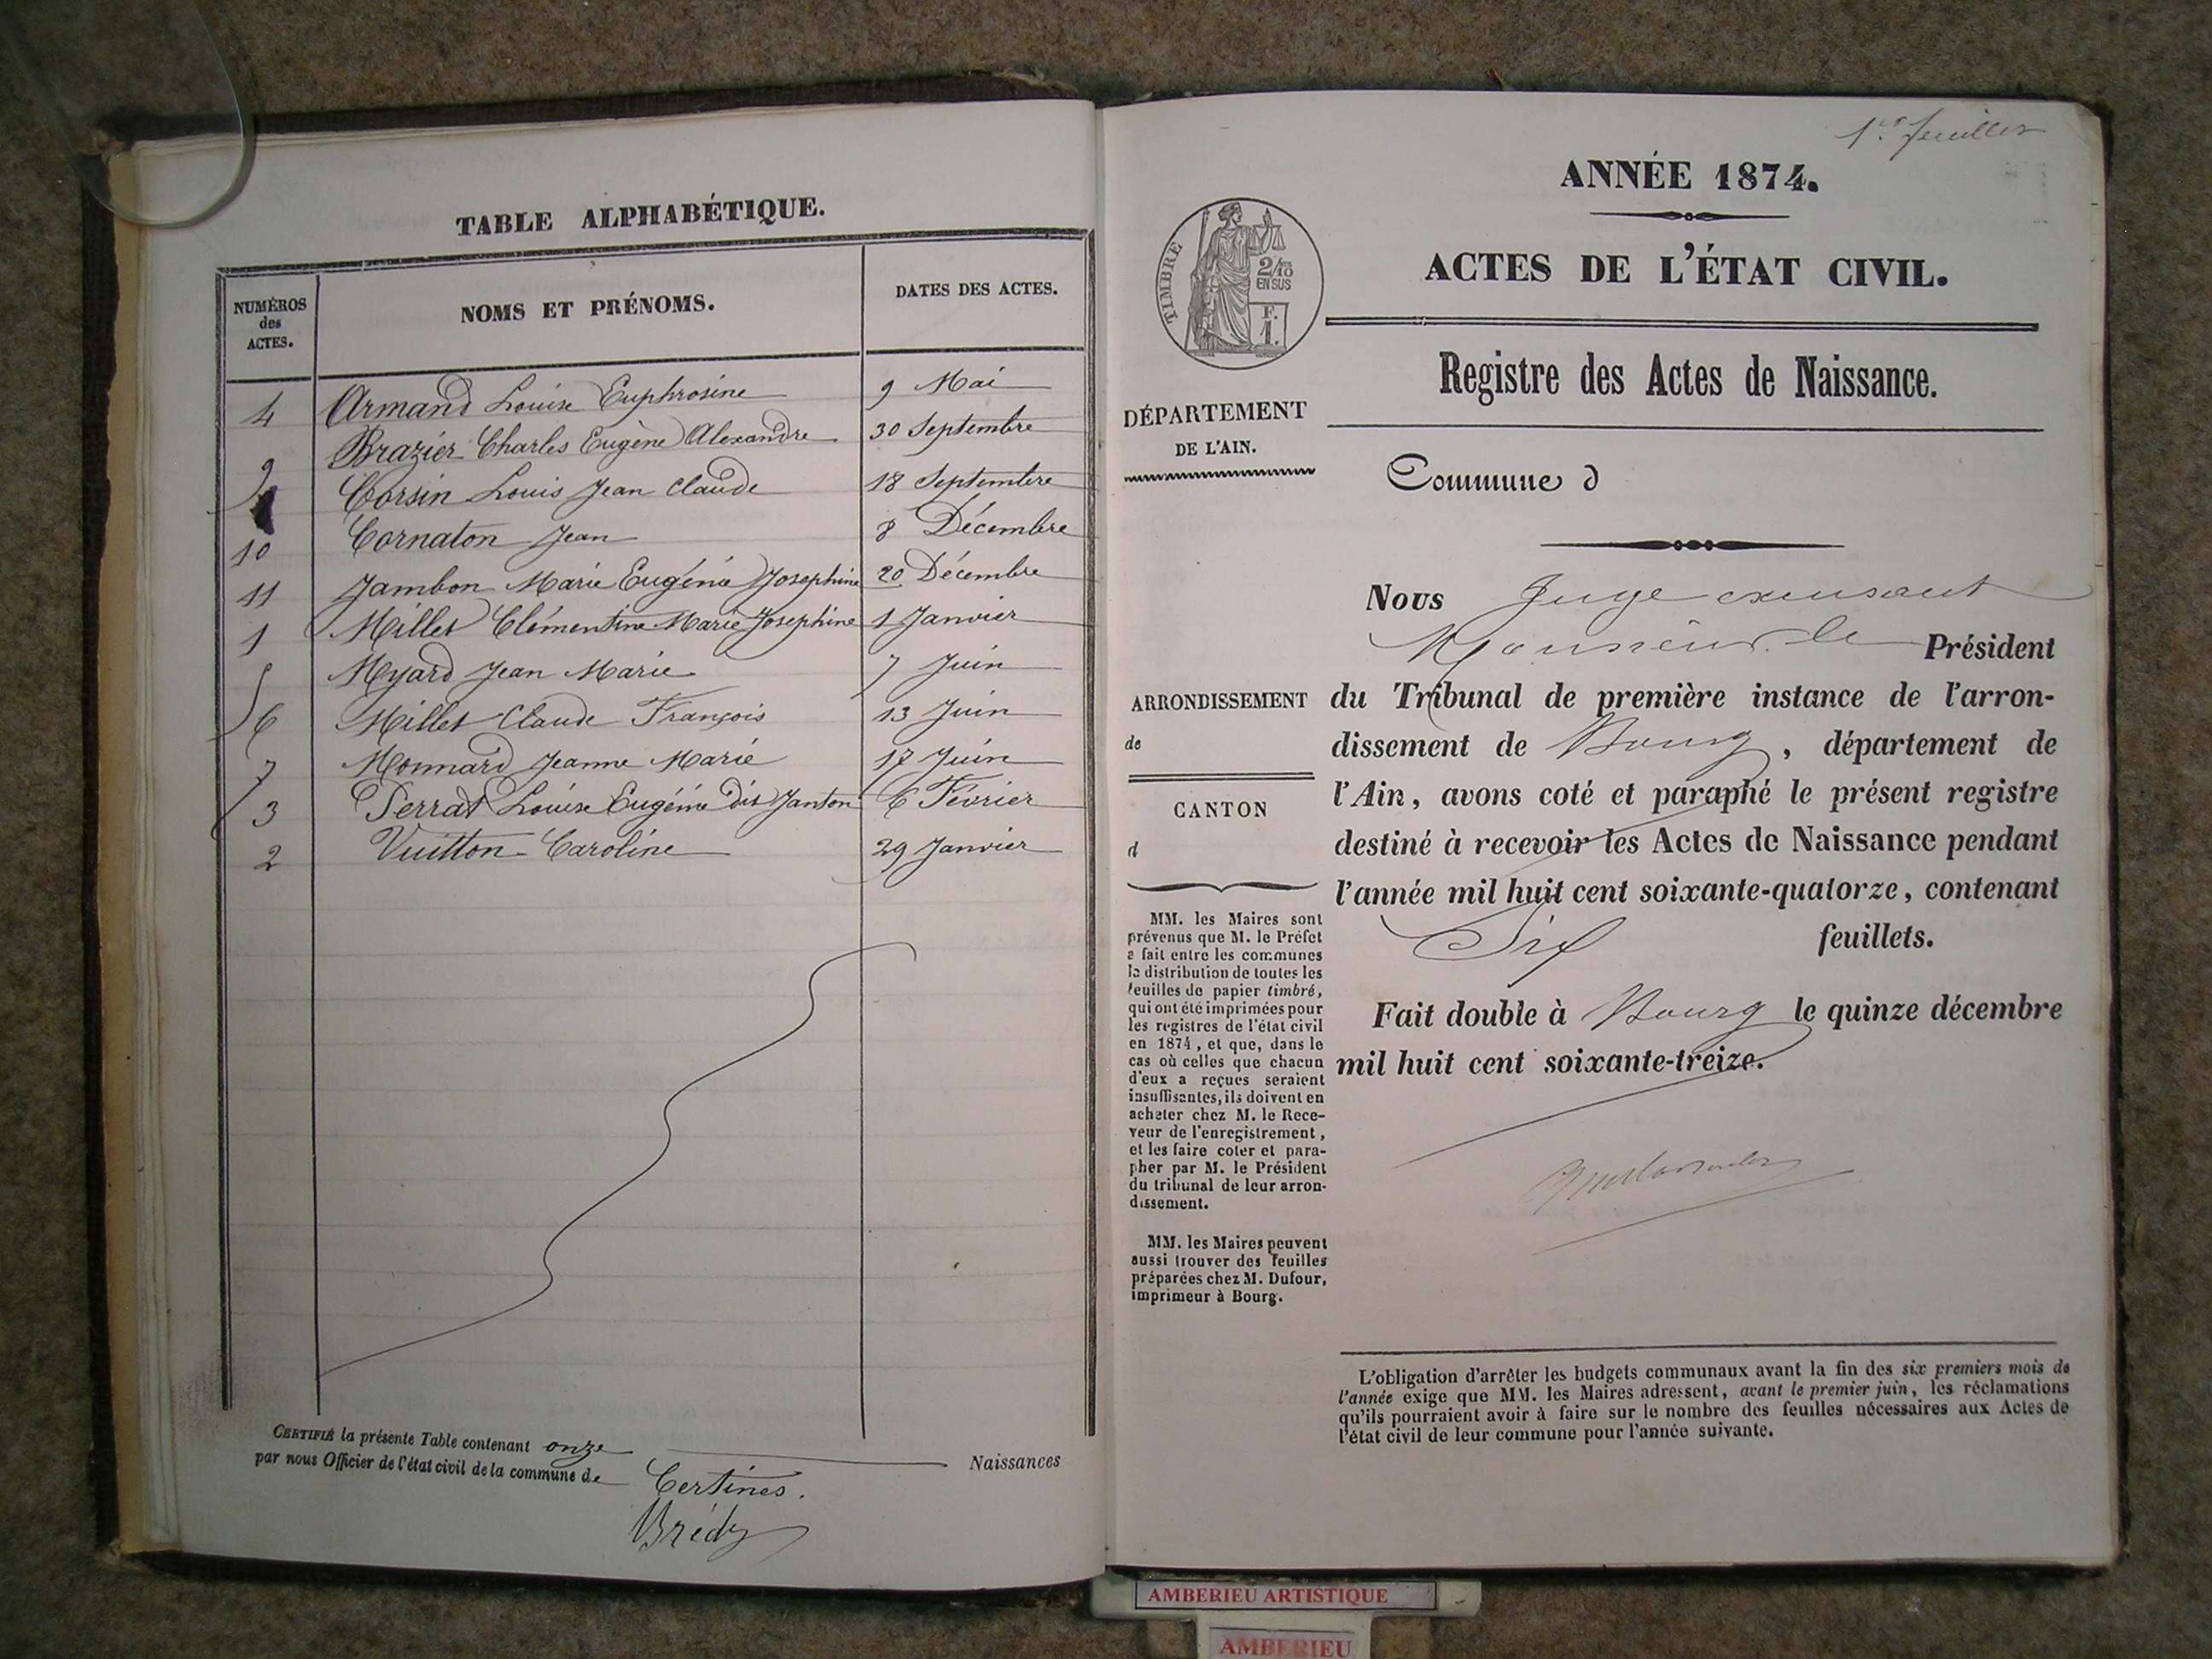 TABLE ALPHABÉTIQUE.
NUMÉROS
des
ACTES.
NOMS ET PRÉNOMS.
DATES DES ACTES.
4 Armand Louise Euphrosine 9 Mai
9 Brazier Charles Eugène Alexandre 30 Septembre
Corsin Louis Jean Claude 18 Septembre
10 Cornaton Jean 8 Décembre
11 Jambon Marie Eugénie Josephine 20 Décembre
1 Millet Clémentine Marie Josephine 1 Janvier
5 Myard Jean Marie 7 Juin
6 Millet Claude François 13 Juin
7 Monnard Jeanne Marie 17 Juin
3 Perrat Louise Eugénie dit Janton 6 Février
2 Vuitton Caroline 29 Janvier
CERTIFIÉ la présente Table contenant onze Naissances
par nous Officier de l'état civil de la commune de Certines.
Brédy
1er feuillet
ANNÉE 1874.
ACTES DE L'ÉTAT CIVIL.
Registre des Actes de Naissance.
TIMBRE
2/10
EN SUS
F.
1.
DÉPARTEMENT
DE L'AIN.
Commune d
ARRONDISSEMENT
de
CANTON
d
MM. les Maires sont
prévenus que M. le Préfet
a fait entre les communes
la distribution de toutes les
feuilles de papier timbré,
qui ont été imprimées pour
les registres de l'état civil
en 1874, et que, dans le
cas où celles que chacun
d'eux a reçues seraient
insuffisantes, ils doivent en
acheter chez M. le Rece-
veur de l'enregistrement,
et les faire coter et para-
pher par M. le Président
du tribunal de leur arron-
dissement.
MM. les Maires peuvent
aussi trouver des feuilles
préparées chez M. Dufour,
imprimeur à Bourg.
Nous Juge
Monsieur le Président
du Tribunal de première instance de l'arron-
dissement de Bourg, département de
l'Ain, avons coté et paraphé le présent registre
destiné à recevoir les Actes de Naissance pendant
l'année mil huit cent soixante-quatorze, contenant
Six feuillets.
Fait double à Bourg le quinze décembre
mil huit cent soixante-treize.
L'obligation d'arrêter les budgets communaux avant la fin des six premiers mois de
l'année exige que MM. les Maires adressent, avant le premier juin, les réclamations
qu'ils pourraient avoir à faire sur le nombre des feuilles nécessaires aux Actes de
l'état civil de leur commune pour l'année suivante.
AMBERIEU ARTISTIQUE
AMBERIEU